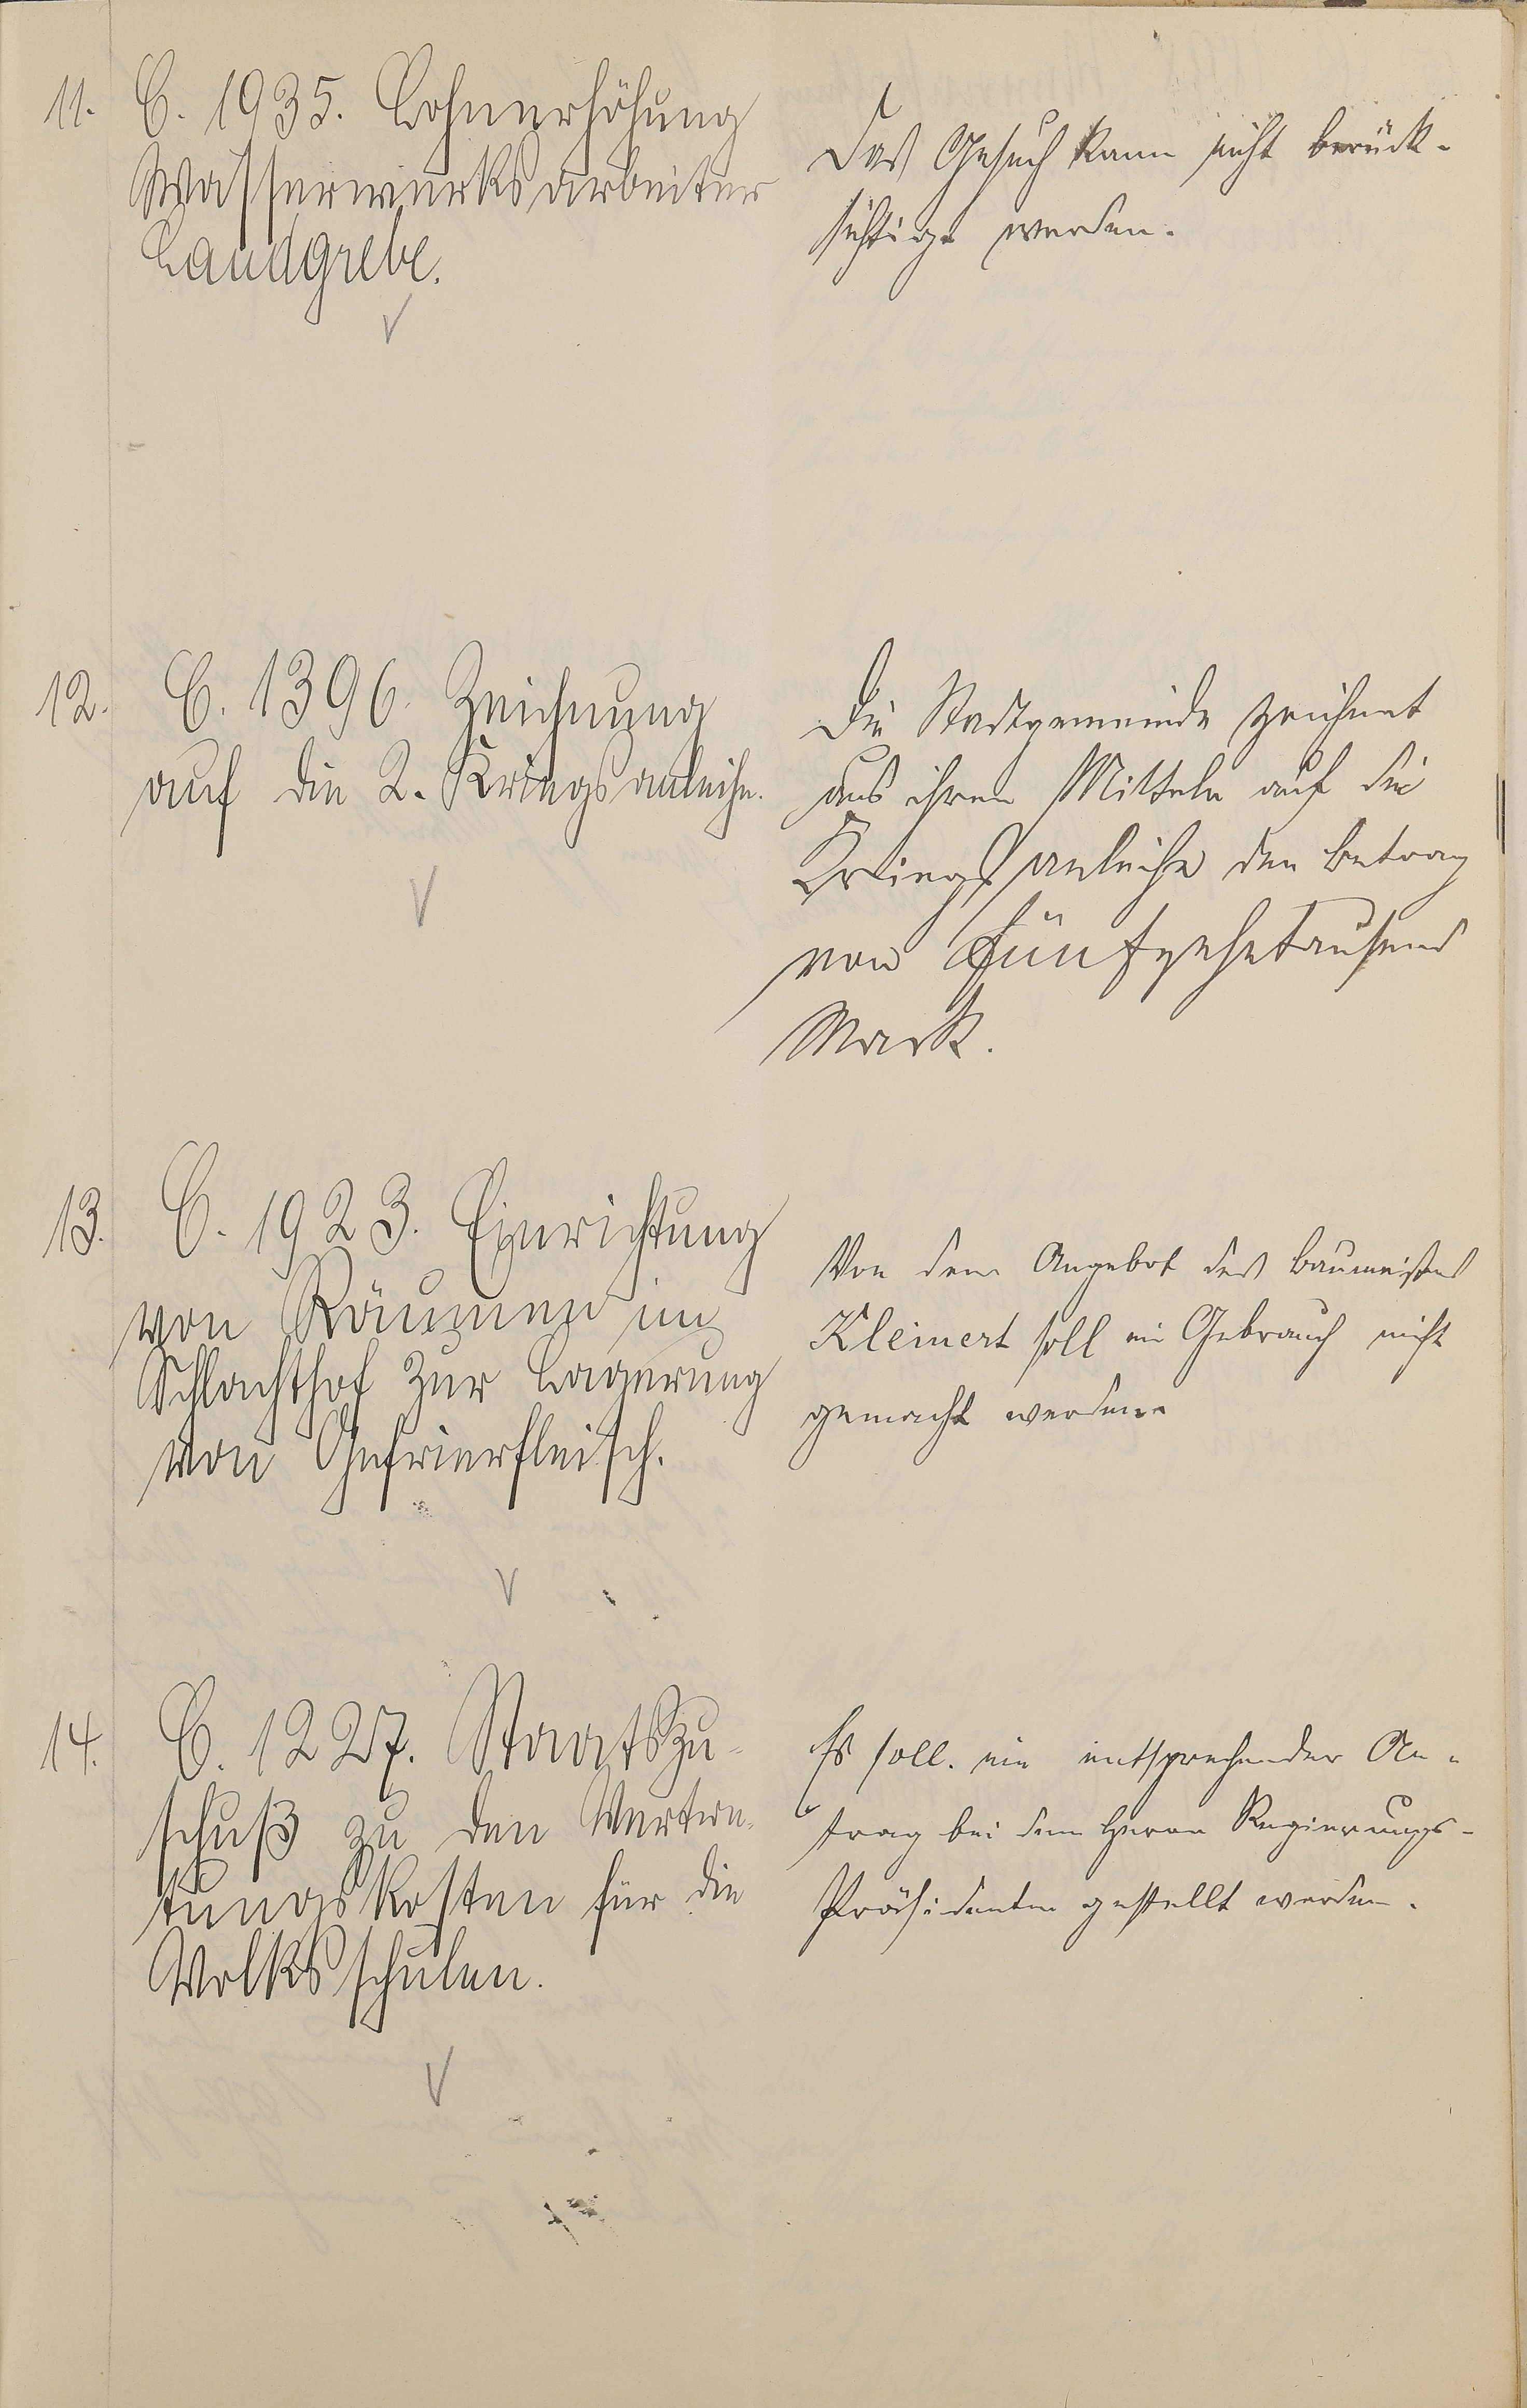 11. C. 1935. Lohnerhöhung
Wasserwerksarbeiter
Landgrebe.
Das Gesuch kann nicht berück-
sichtigt werden.
12. C. 1396. Zeichnung
auf die 2. Kriegsanleihe.
Die Stadtgemeinde zeichnet
aus ihren Mitteln auf die
Kriegsanleihe den Betrag
von Fünfzehntausend
Mark.
13. C. 1923. Einrichtung
von Räumen im
Schlachthof zur Lagerung
von Gefrierfleisch.
Von dem Angebot des Baumeisters
Kleinert soll ein Gebrauch nicht
gemacht werden.
14. C. 1227. Staatszu-
schuß zu den Vertre-
tungskosten für die
Volksschulen.
Es soll ein entsprechender An-
trag bei dem Herrn Regierungs-
Präsidenten gestellt werden.